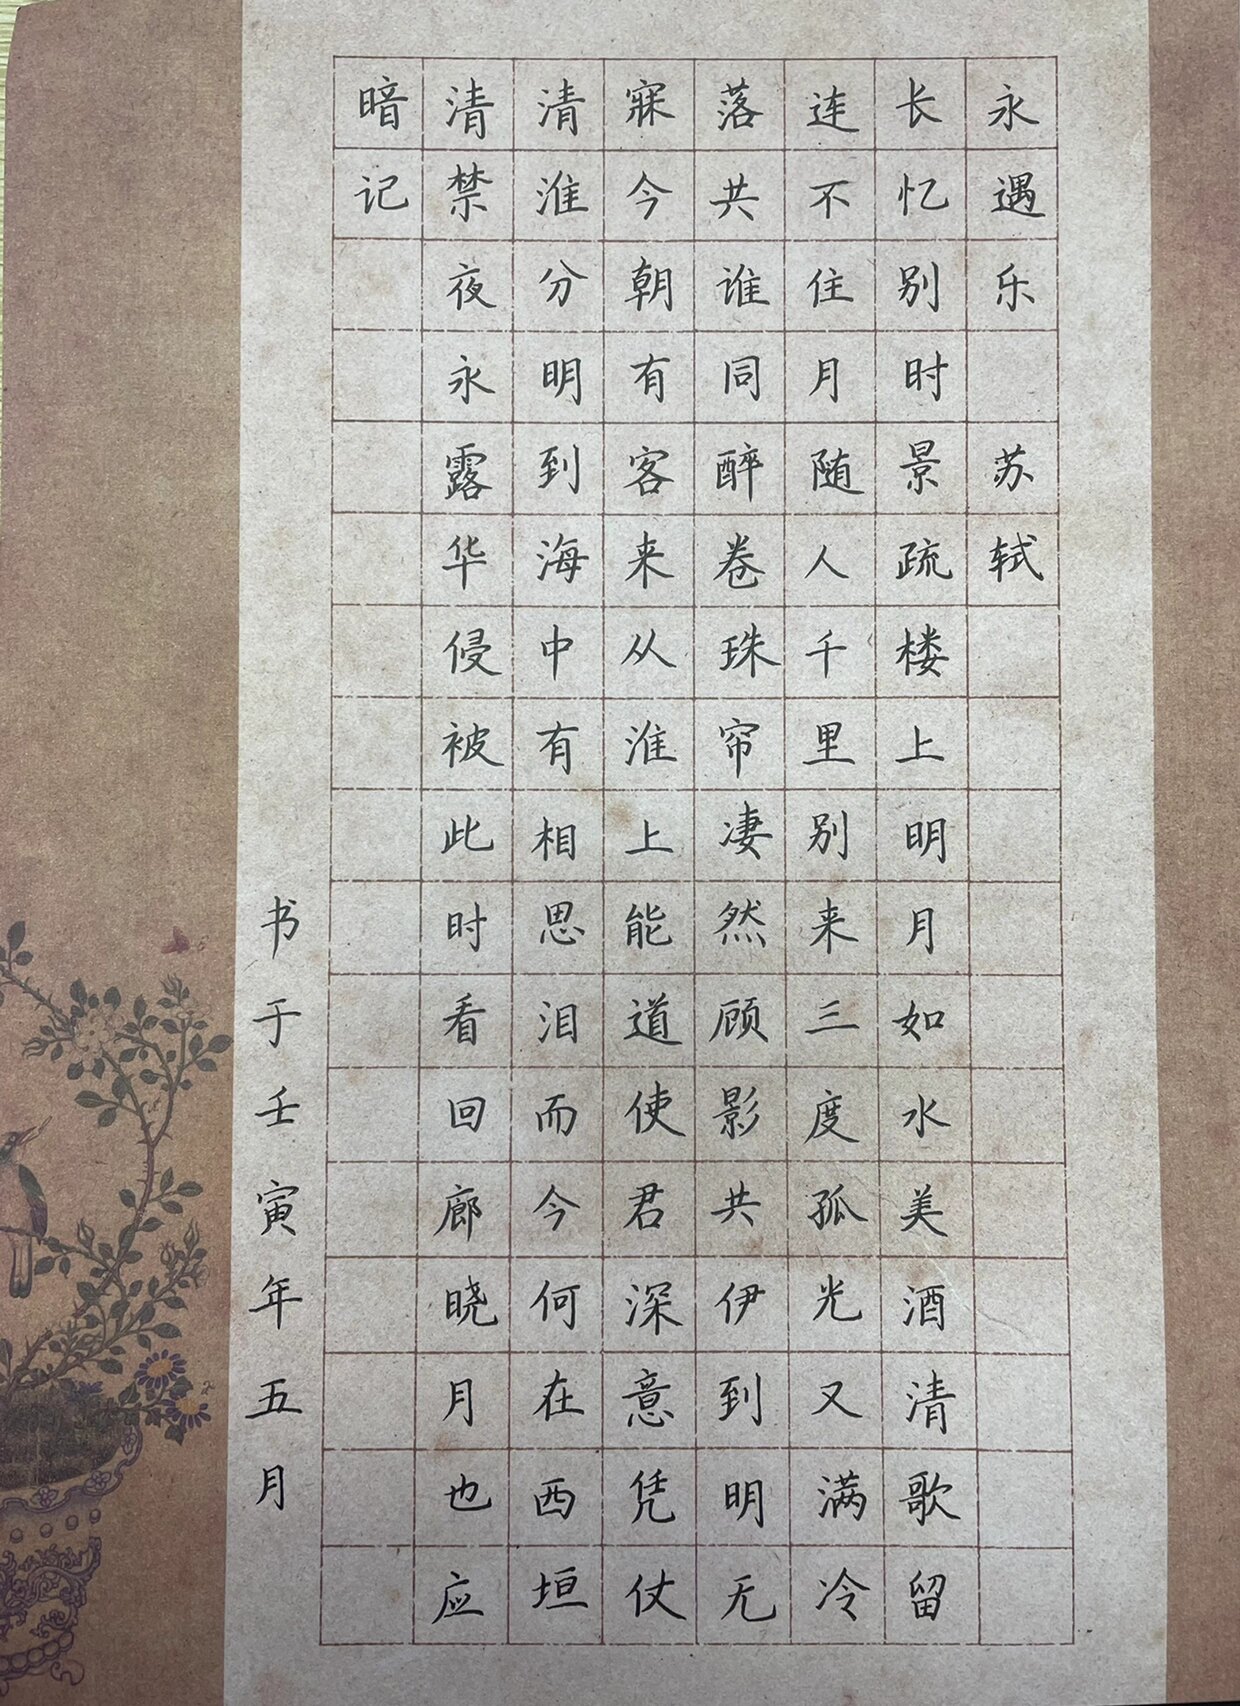 永遇乐 苏轼
长忆别时景疏楼上明月如水美酒清歌留
连不住月随人千里别来三度孤光又满冷
落共谁同醉卷珠帘凄然顾影共伊到明无
寐今朝有客来从淮上能道使君深意凭仗
清淮分明到海中有相思泪而今何在西垣
清禁夜永露华侵被此时看回廊晓月也应
暗记
书于壬寅年五月